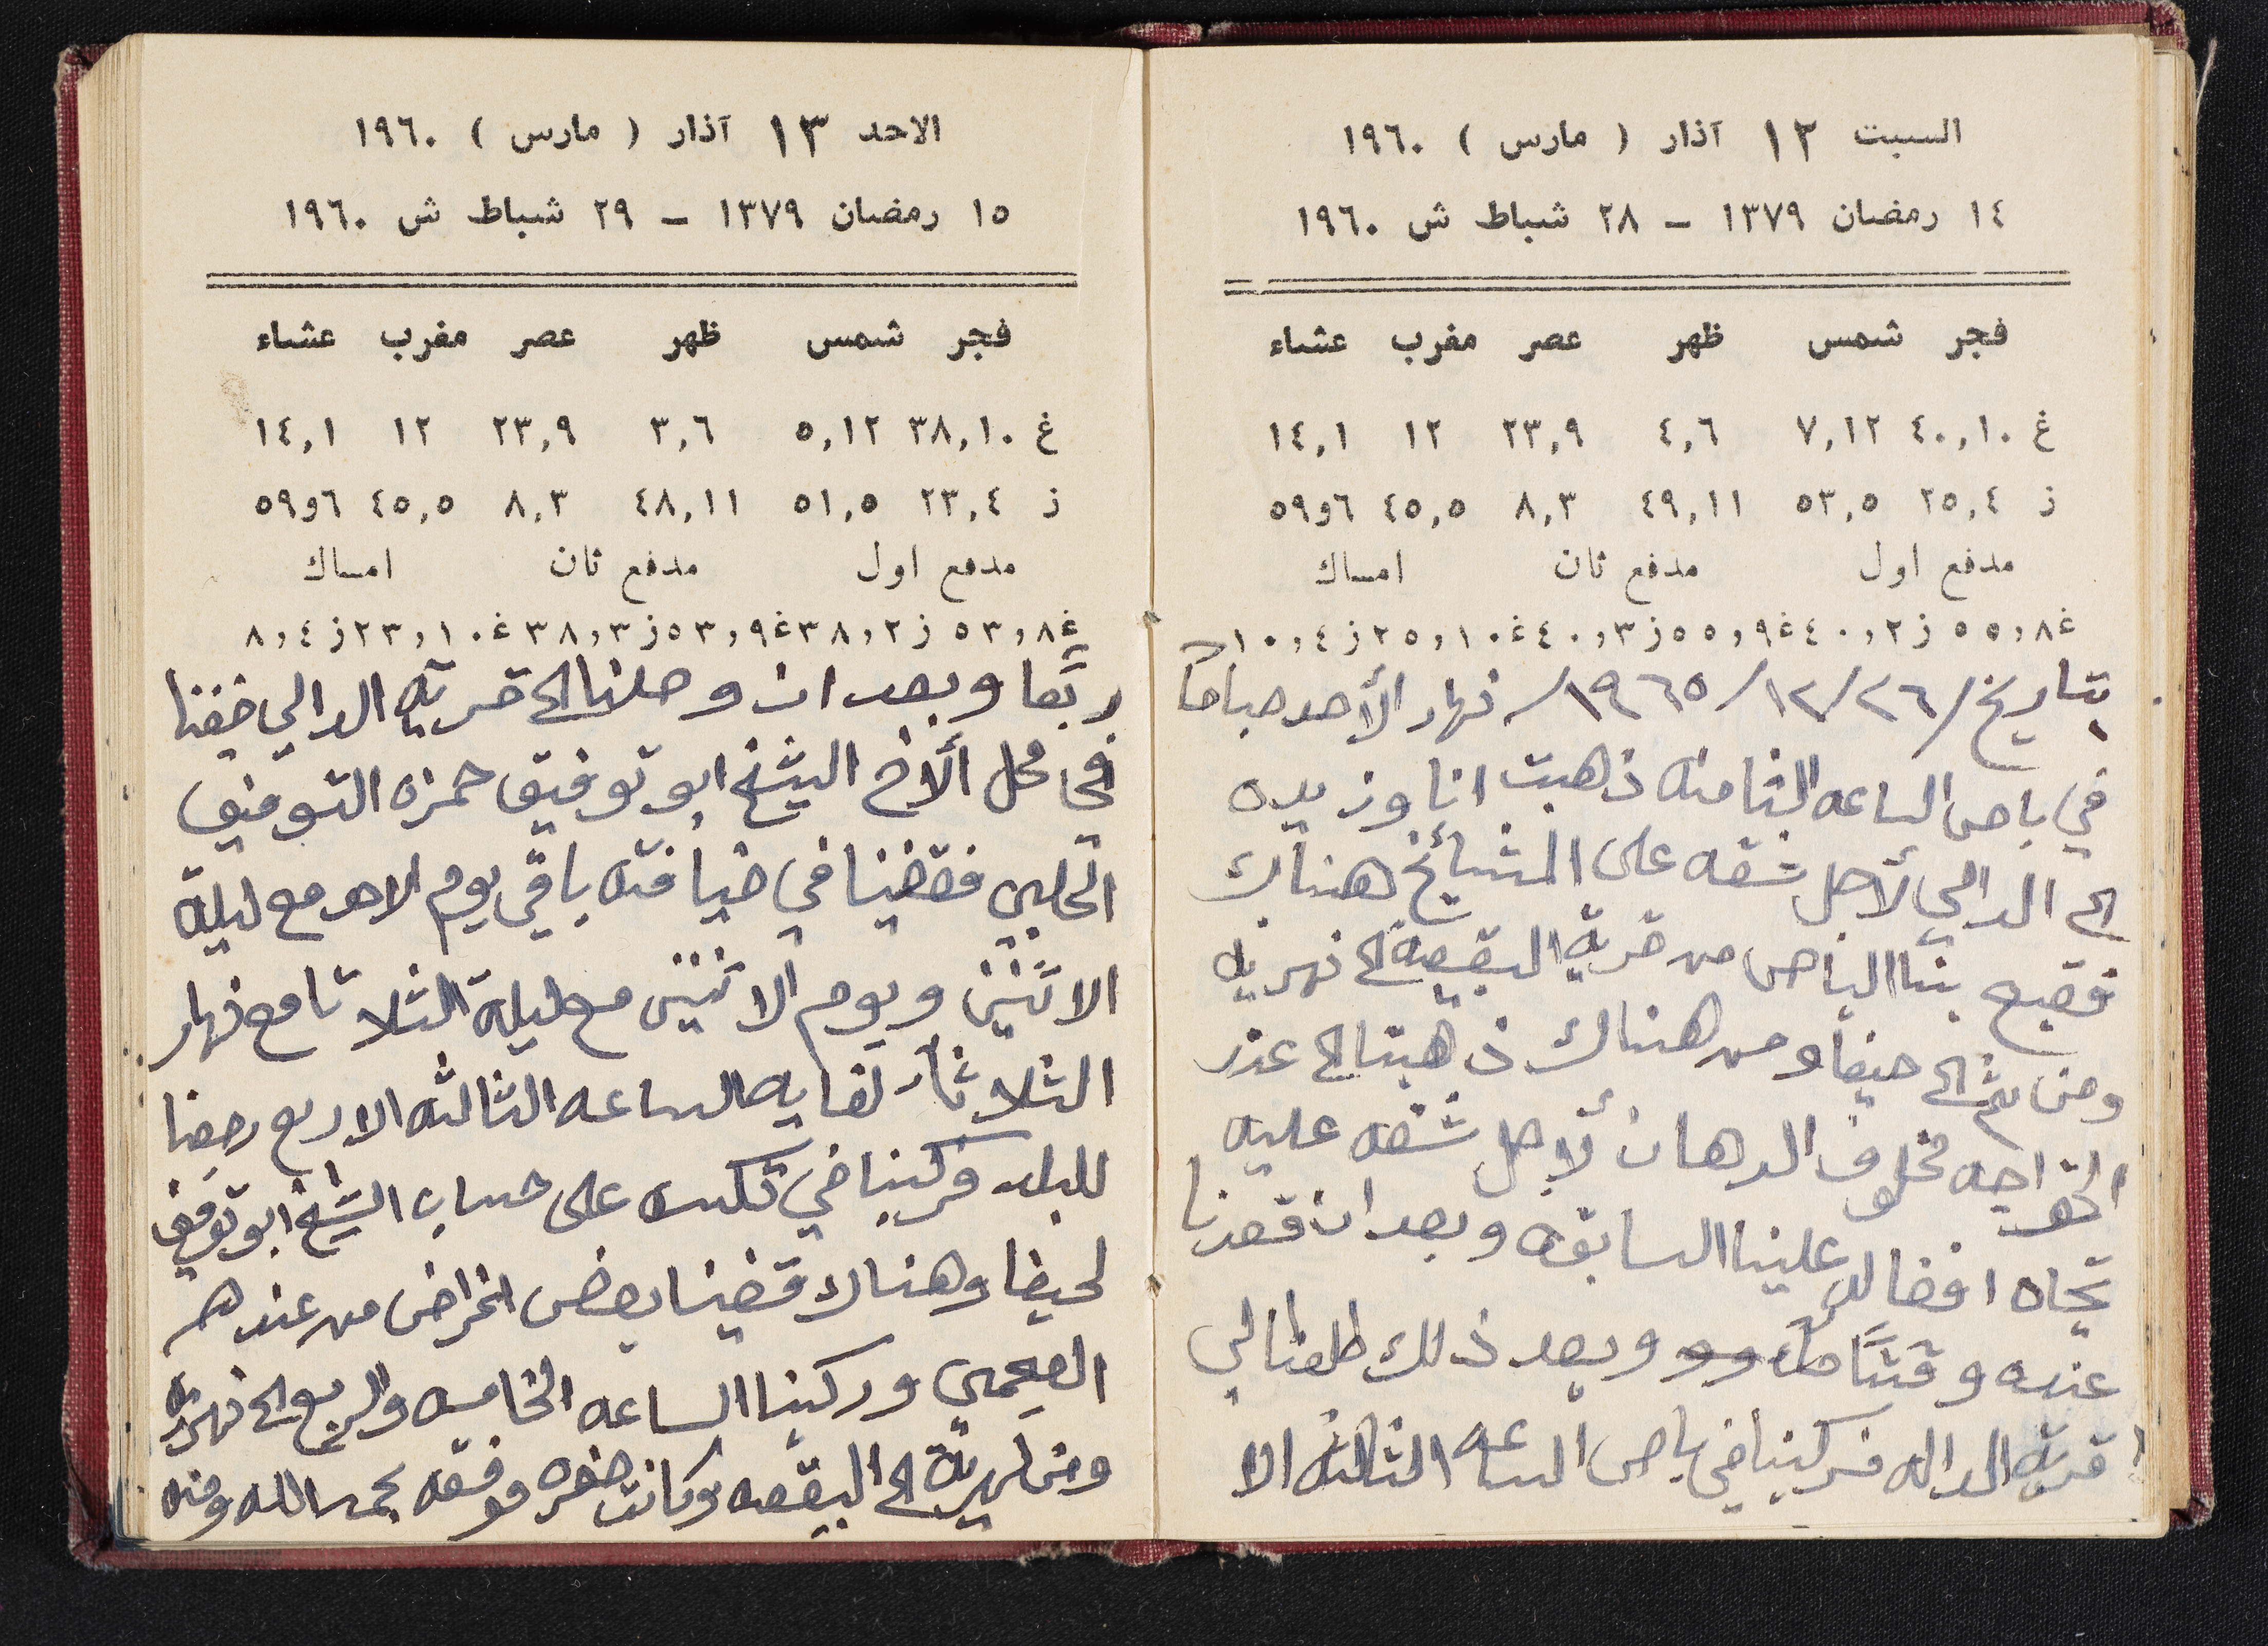 السبت ١٢ آذار ( مارس ) ١٩٦٠
١٤ رمضان ١٣٧٩ - ٢٨ شباط ش ١٩٦٠
فجر شمس ظهر عصر مغرب عشاء
غ ٤٠,١٠ ٧,١٢ ٤,٦ ٢٣,٩ ١٢ ١٤,١
ز ٢٥,٤ ٥٣,٥ ٤٩,١١ ٨,٣ ٤٥,٥ ٦و٥٩
مدفع اول مدفع ثان امساك
غ٥٥,٨ ز٤٠,٢ غ٥٥,٩ ز٤٠,٣ غ٢٥,١٠ ز١٠,٤
بتاريخ /٢٦/١٢/١٩٦٥/ نهار الأحد صباحاً
في باص الساعه الثامنه ذهبت انا وزيده
الى الدالي لأجل شقه على المشائخ هناك
فقبع بنا الباص من قرية البقيعه الى نهريه
ومن ثم الى حيفا ومن هناك ذهبنا الى عند
الخواجه مخلوف الدهان لأجل شقه عليه
تجاه افضاله علينا السابقه وبعد ان قعدنا
عنده وقتاً وبعد ذلك طلعنا لي
قرية الداله فركبنا في باص الساعه الثالثه الا
الاحد ١٣ آذار ( مارس ) ١٩٦٠
١٥ رمضان ١٣٧٩ - ٢٩ شباط ش ١٩٦٠
فجر شمس ظهر عصر مغرب عشاء
غ ٣٨,١٠ ٥,١٢ ٣,٦ ٢٣,٩ ١٢ ١٤,١
ز ٢٣,٤ ٥١,٥ ٤٨,١١ ٨,٣ ٤٥,٥ ٦و٥٩
مدفع اول مدفع ثان امساك
غ٥٣,٨ ز٣٨,٢ غ٥٣,٩ ز٣٨,٣ غ٢٣,١٠ ز٨,٤
ربعا وبعد ان وصلنا الى قرية الدالي ضفنا
في محل الأخ الشيخ ابو توفيق حمزه التوفيق
الحلبي فقضينا في ضيافته باقي يوم الاحد مع ليلة
الاثنين ويوم الاثنين مع ليلة الثلاثا مع نهار
الثلاثاء لغاية الساعه الثالثه الا ربع رجعنا
للبلد فركبنا في تكسه على حساب الشيخ ابو توفيق
لحيفا وهناك قضينا بعض اغراض من عند هم
وركبنا الساعه الخامسه والربع الى نهريه
ومن نهرية الى البقيعه وكانت سفره موفقه بحمد الله ومنه